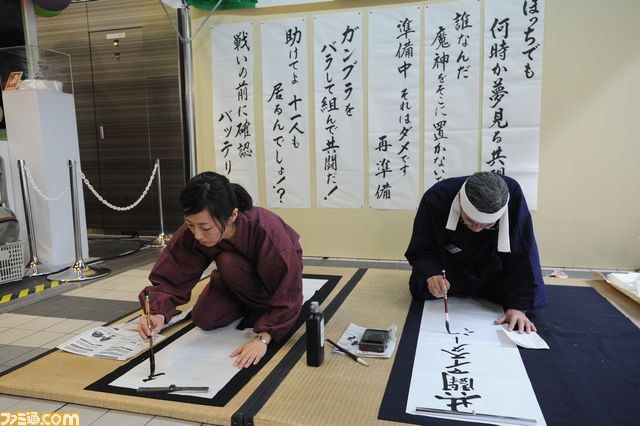 ぼっちでも
何時か夢見る共闘
誰なんだ
魔神をそこに置かない
準備中 それはダメです
再準備
ガンプラを
バラして組んで共闘だ!
助けてよ 十一人も
居るんでしょ!?
戦いの前に確認
バッテリ
共闘マイスター
ファミ通.com